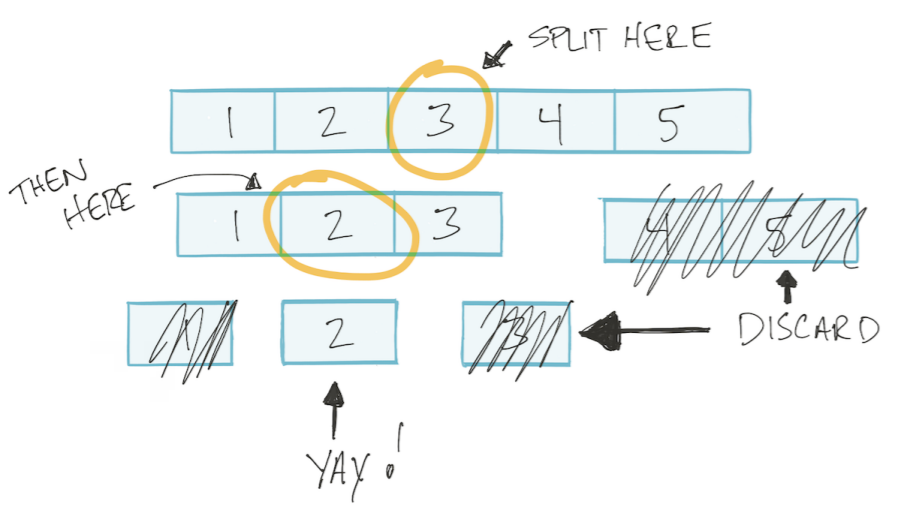 SPLIT HERE
1 2 3 4 5
THEN
HERE
1 2 3 4 5
1 2 3
DISCARD
YAY!